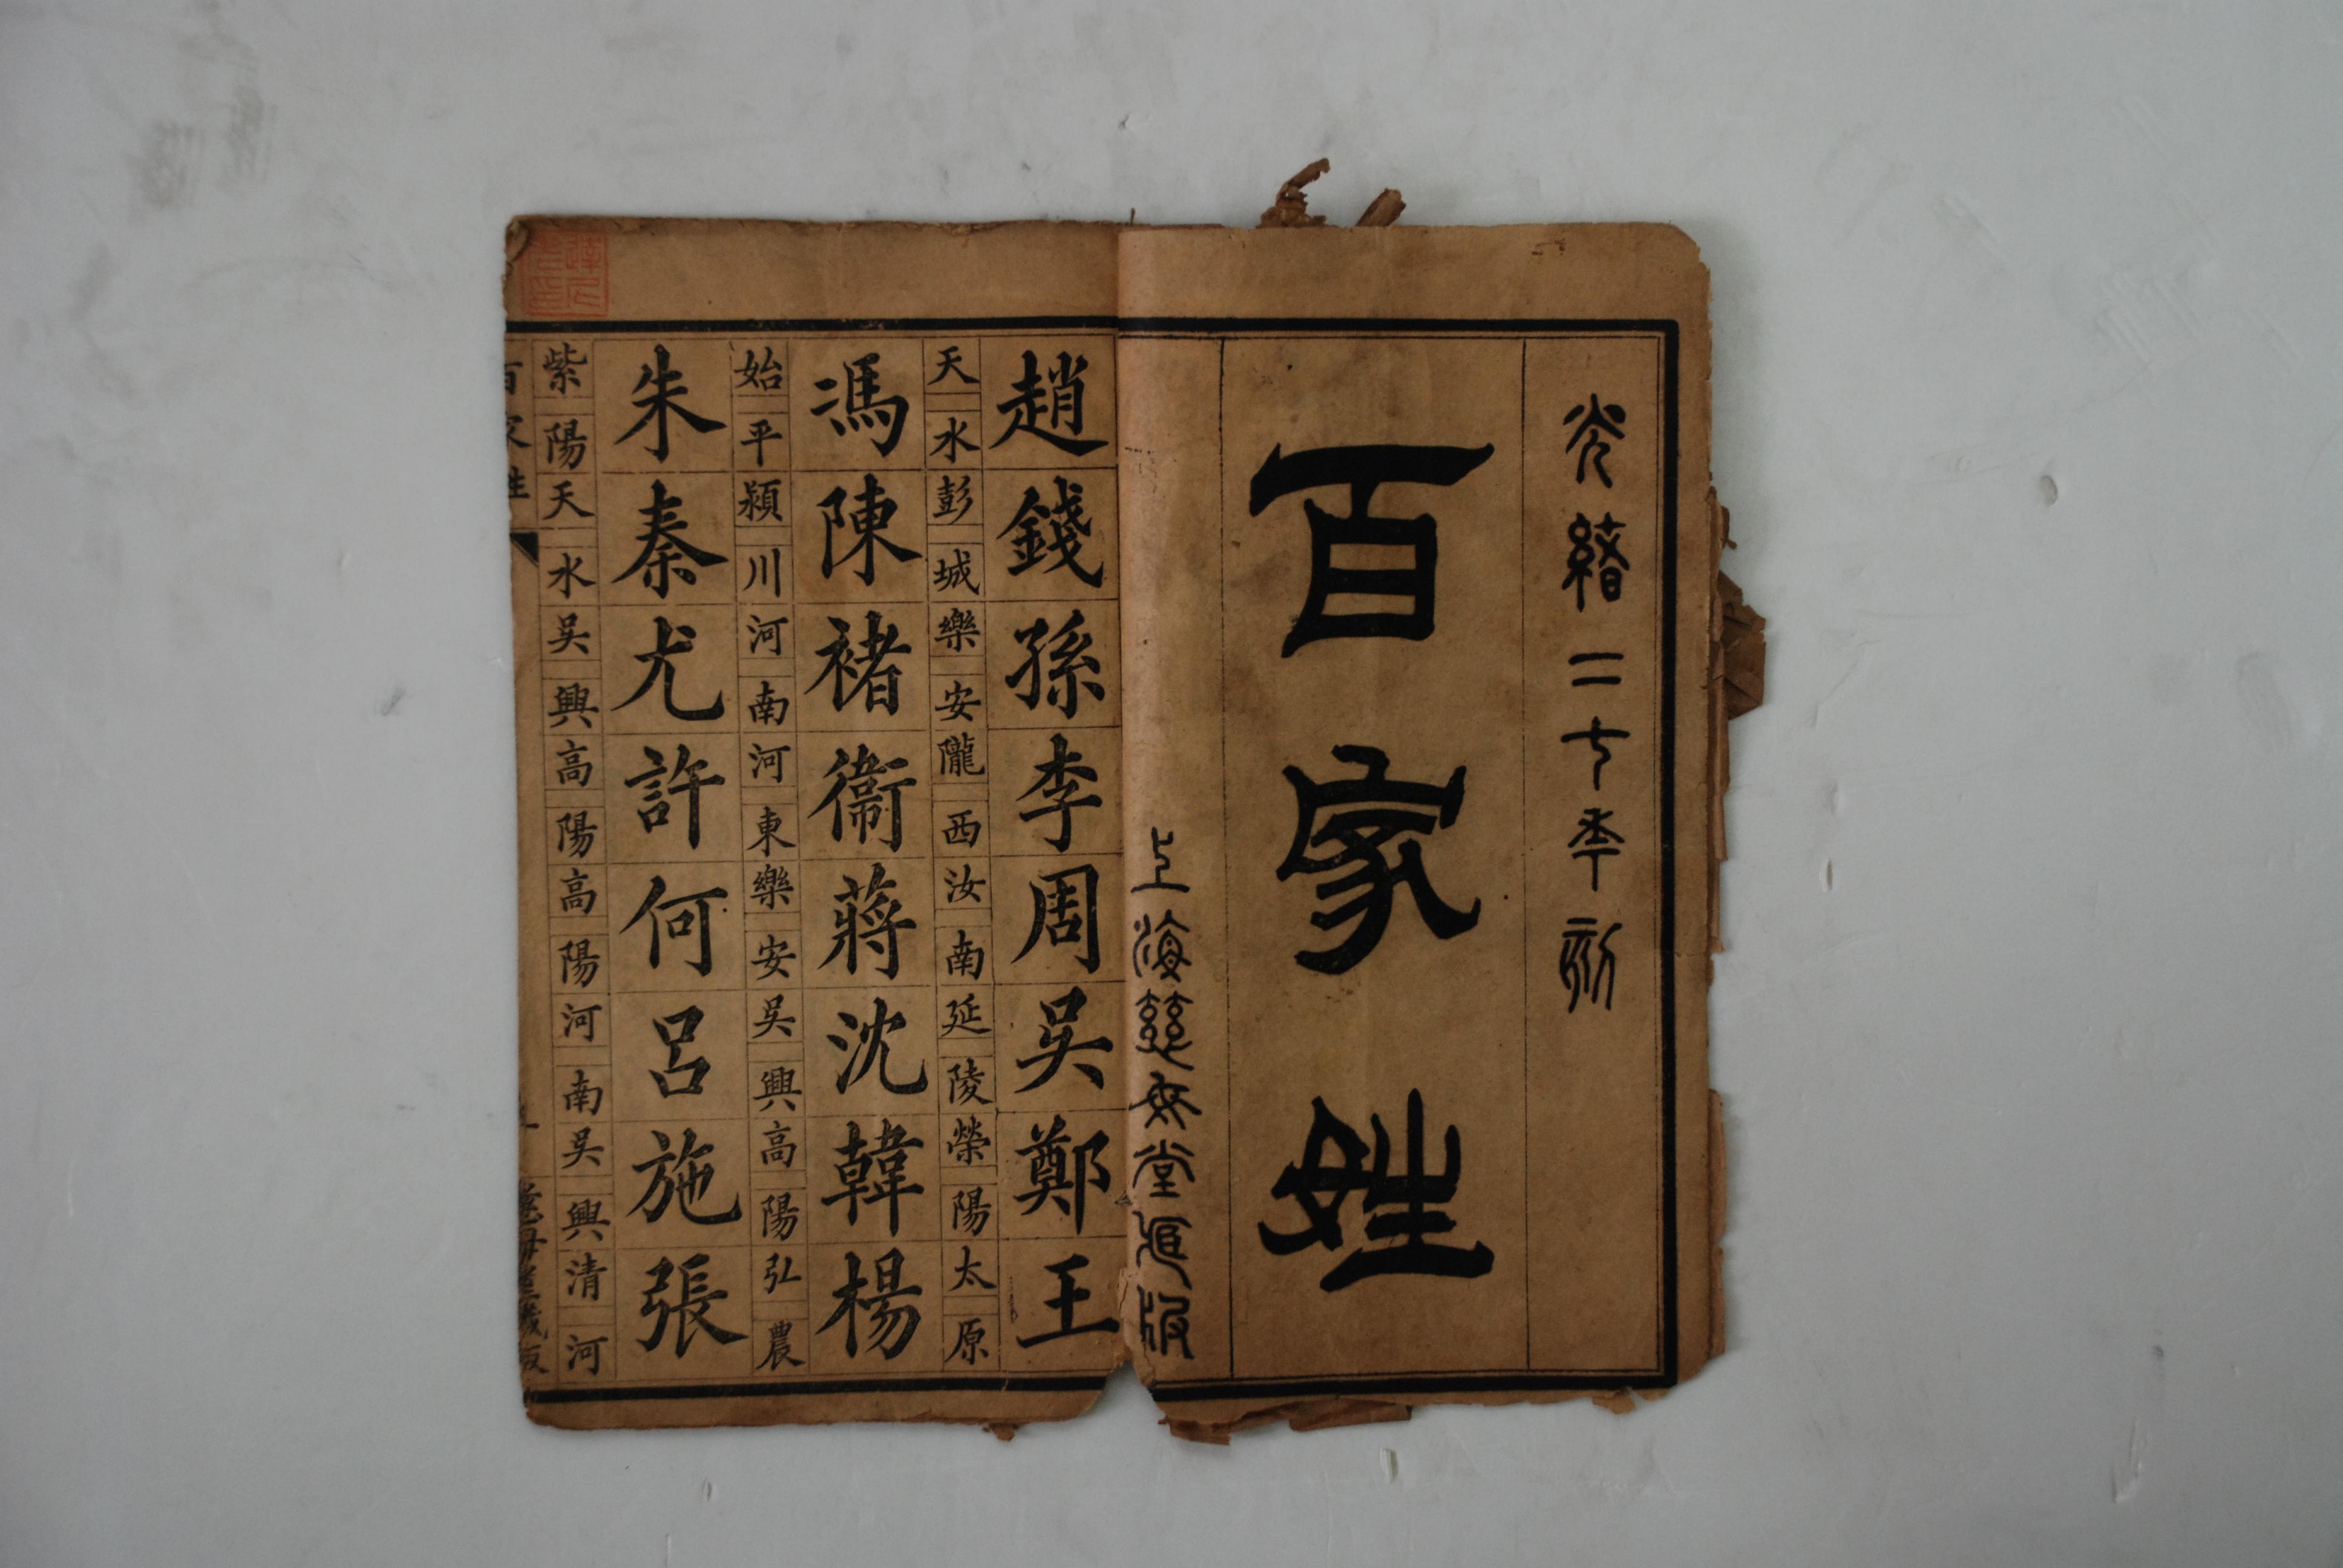 光緒二七年刻
百家姓
上海慈母堂版
趙錢孫李周吳鄭王
天水彭城樂安隴西汝南延陵榮陽太原
馮陳褚衞蔣沈韓楊
始平潁川河南河東樂安吳興高陽弘農
朱秦尤許何呂施張
紫陽天水吳興高陽高陽河南吳興清河
百家姓
慈母堂版